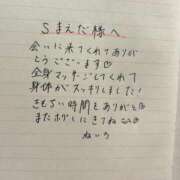 Sまえだ様へ
会いに来てくれてありが
とうございます♡
全身マッサージしてくれて
身体がスッキリしました!
きもちい時間をありがと◎
またホグしにきてね
ねいろ